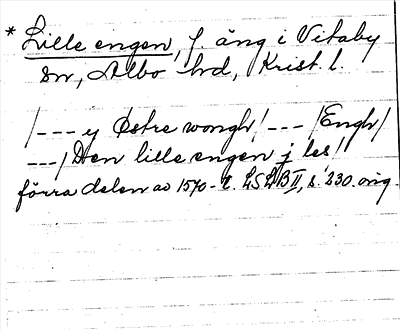 * Lille engen, f. äng i Vitaby
sn, Albo hrd, Krist. l.
/--- y Østre wongh/ --- /Engh/
---/ Den lille engen j les/
förra delen av 1570-t. LSLB II, s. 230. orig.